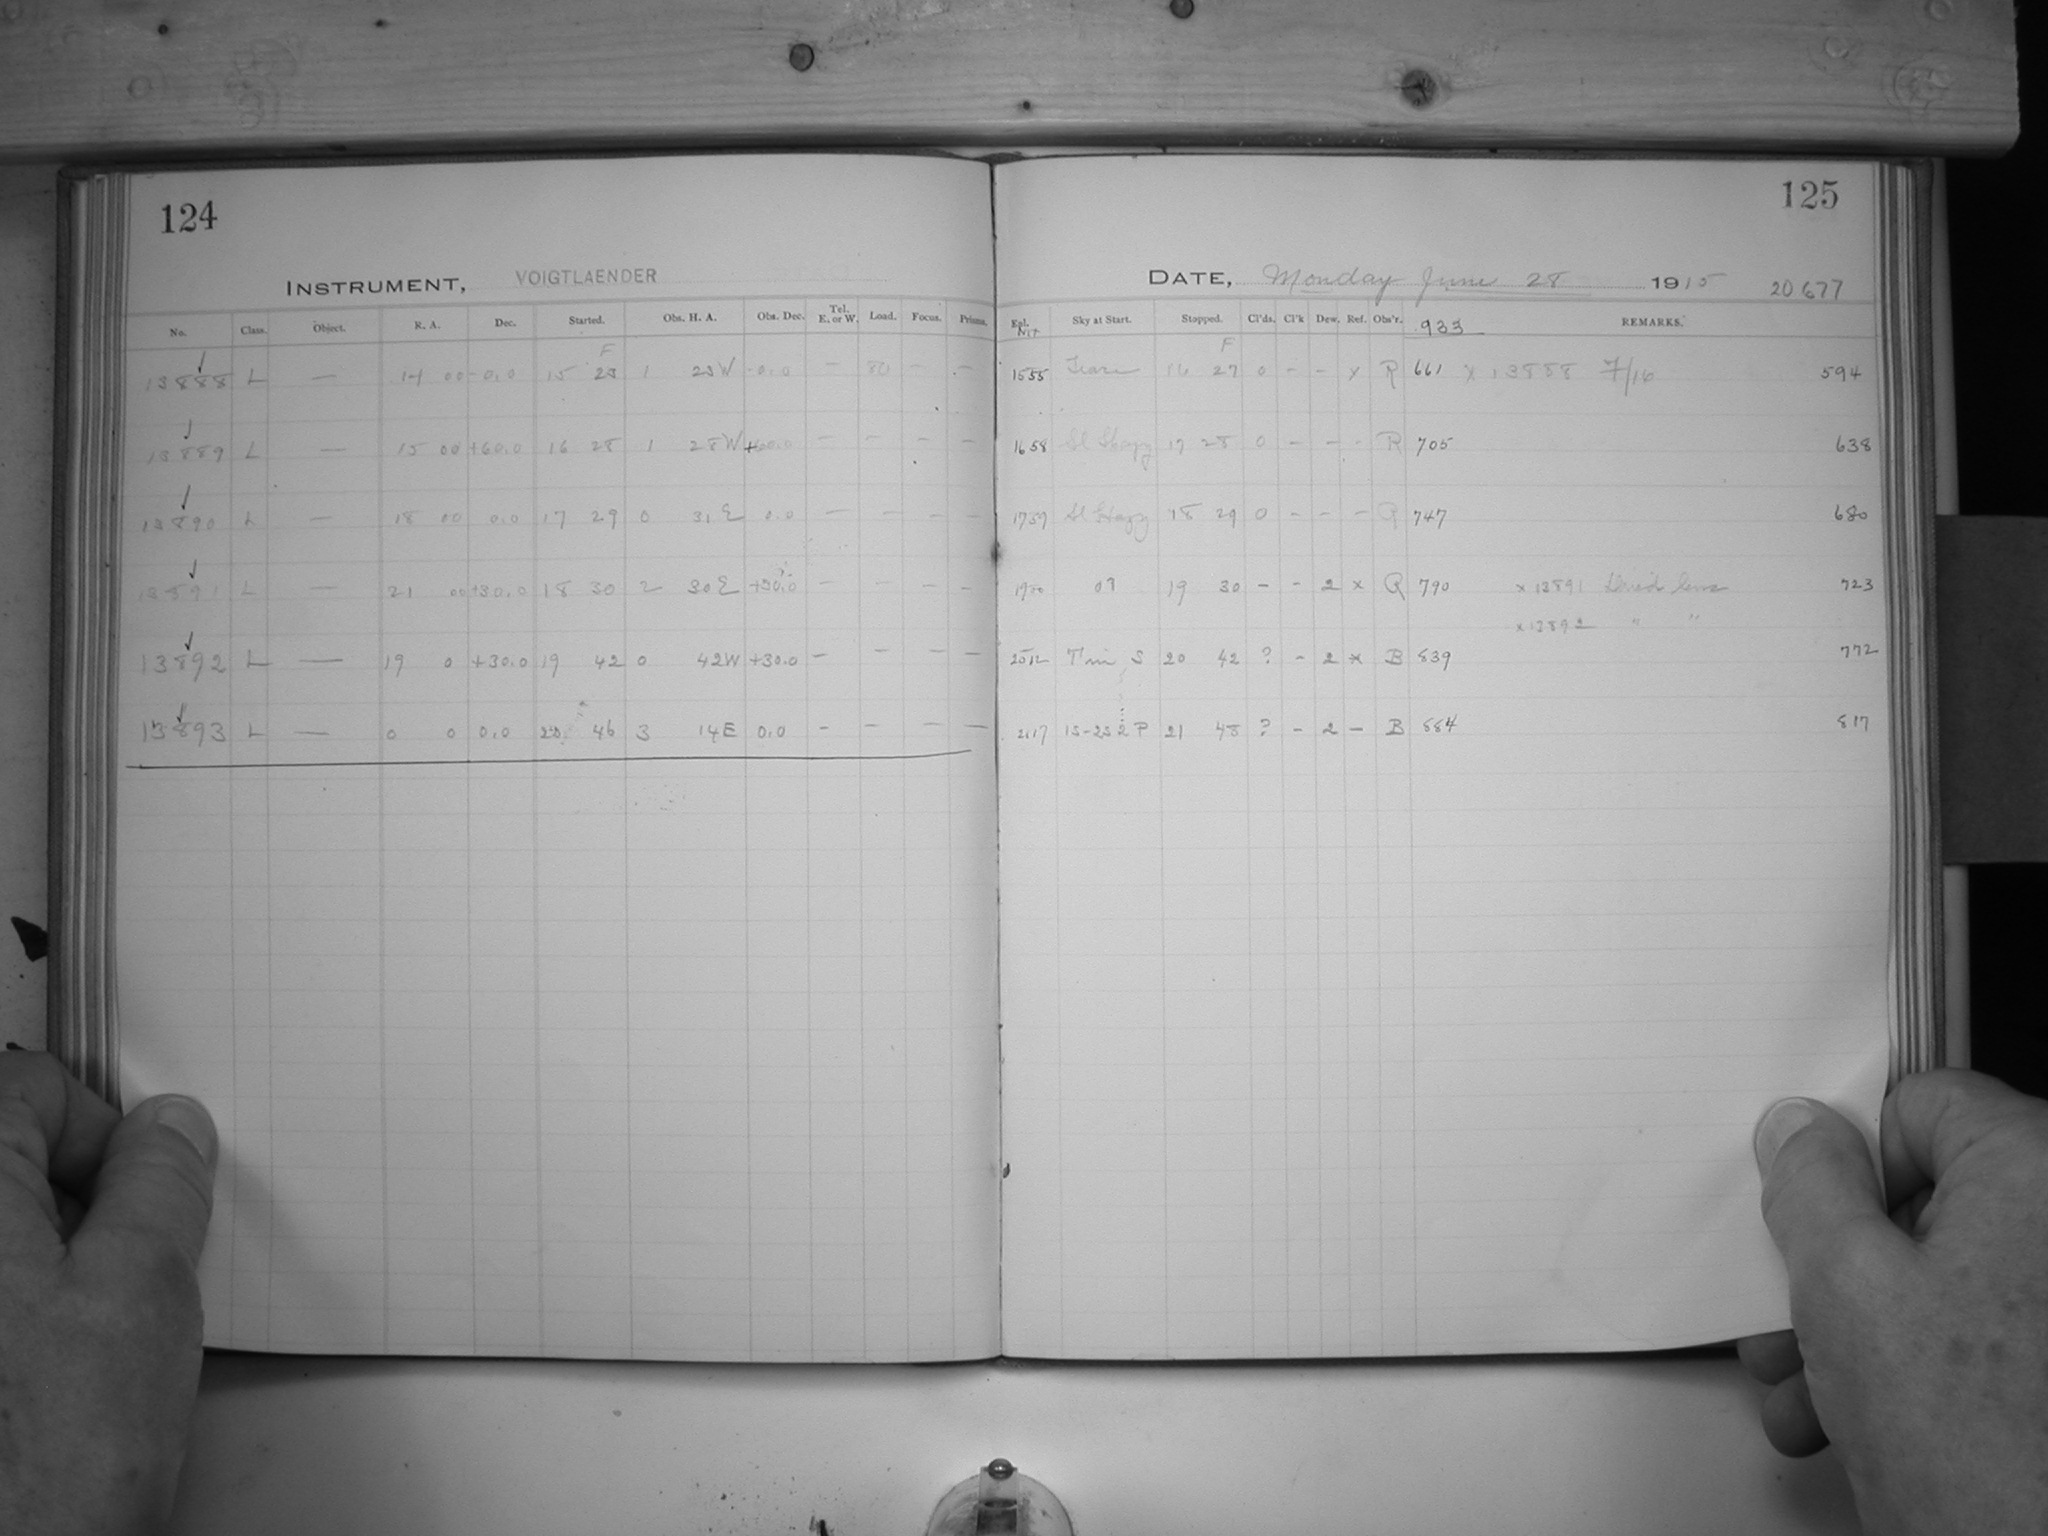 124
INSTRUMENT, VOIGTLAENDER
No. Class. Object. R. A. Dec. Started. Obs. H. A. Obs. Dec. Tel. E. or W. Load. Focus. Prisms.
F
13888 L — 14 00 -0.0 15 23 1 23W -0.0 — 80 — —
13889 L — 15 00 +60.0 16 28 1 28W +60.0 — — — —
13890 L — 18 00 0.0 17 29 0 31E 0.0 — — — —
13891 L — 21 00 +30.0 18 30 2 30E +30.0 — — — —
13892 L — 19 0 +30.0 19 42 0 42W +30.0 — — — —
13893 L — 0 0 0.0 20 46 3 14E 0.0 — — — —
125
DATE, Monday June 28 1915 20677
Sky at Start. Stopped. Cl'ds. Cl'k Dew. Ref. Obs'r. 933 REMARKS.
F
1555 16 27 0 - - x R 661 x 13888 7/16 594
1658 Sl Hazy 17 28 0 - - - R 705 638
1759 Sl Hazy 18 29 0 - - - R 747 680
1900 19 30 - - 2 x R 790 x 13891 Dried lens 723
x 13892 " "
2012 S 20 42 ? - 2 x B 839 772
2117 1S-2S 2 P 21 48 ? - 2 - B 884 817